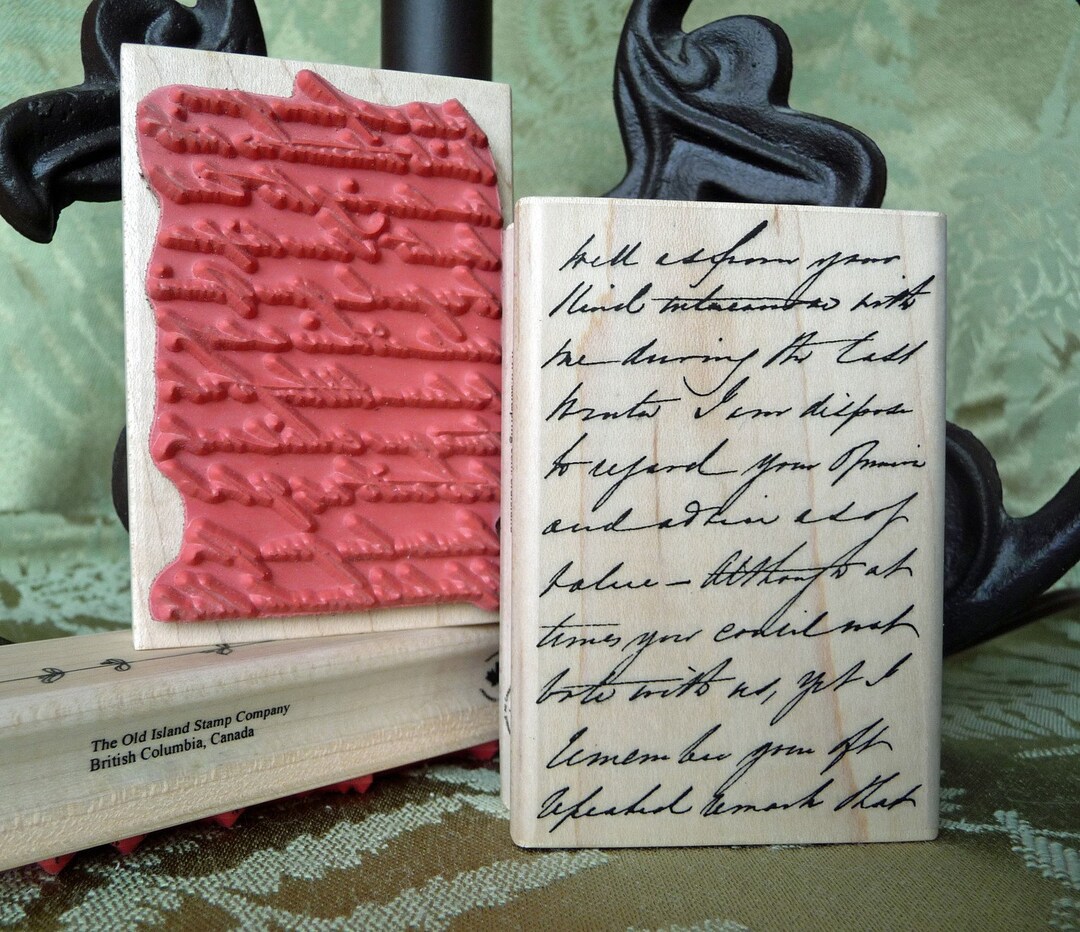 Well as from your
Kind intercourse with
me during the last
Winter I am dispose
to regard your Opinion
and advice as of
value - Although at
times you could not
vote with us, yet I
remember your oft
repeated remark that
The Old Island Stamp Company
British Columbia, Canada